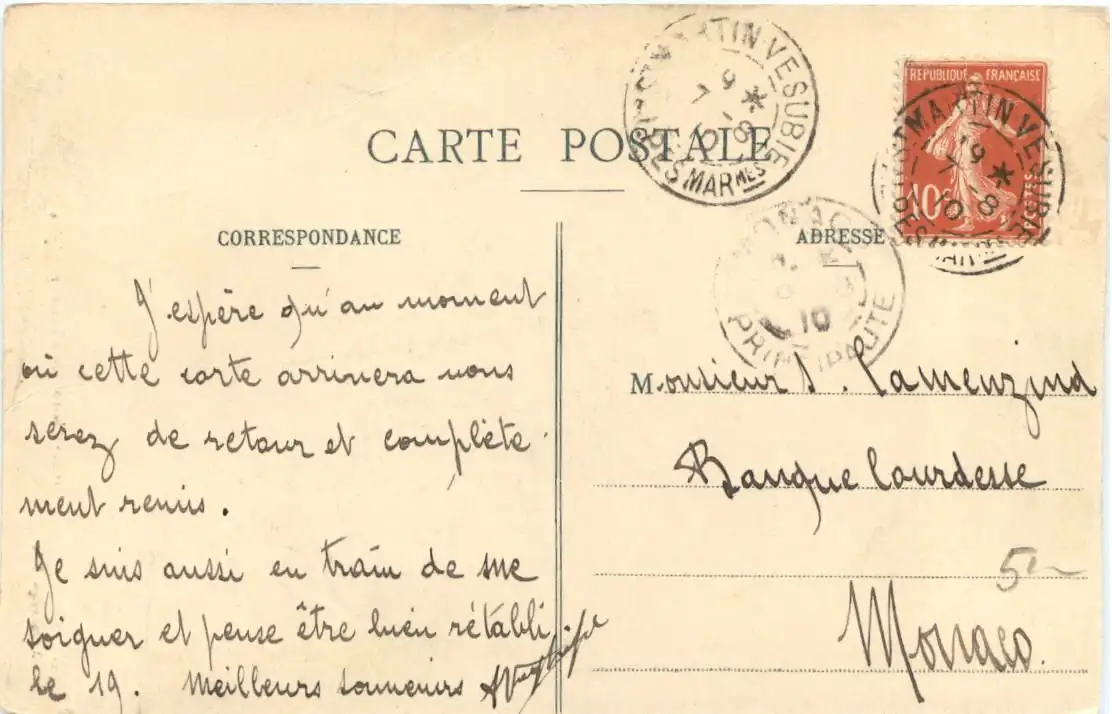 CARTE POSTALE
ST MARTIN-VESUBIE
7-8
10
ALPES MARMES
REPUBLIQUE FRANÇAISE
10c
POSTES
ST MARTIN-VESUBIE
7-8
10
MONACO
10
PRINCIPAUTE
CORRESPONDANCE
J'espère qu'au moment
où cette carte arrivera vous
serez de retour et complète
ment remis.
Je suis aussi en train de me
soigner et pense être bien rétabli
le 19. Meilleurs souvenirs
ADRESSE
Monsieur J. Camenzind
Banque Courdesse
5
Monaco.